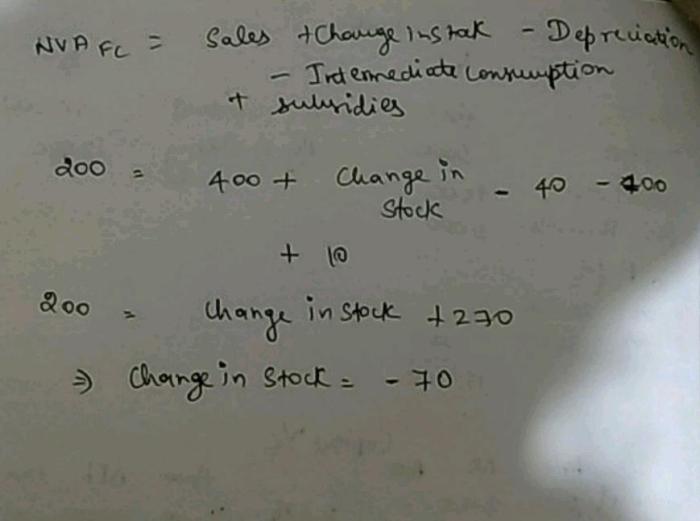 NVA FC = Sales + Change in stak - Depreciation
- Intermediate Consumption
+ subsidies
200 = 400 + Change in Stock - 40 - 100
+ 10
200 = Change in stock + 270
⇒ Change in Stock = - 70